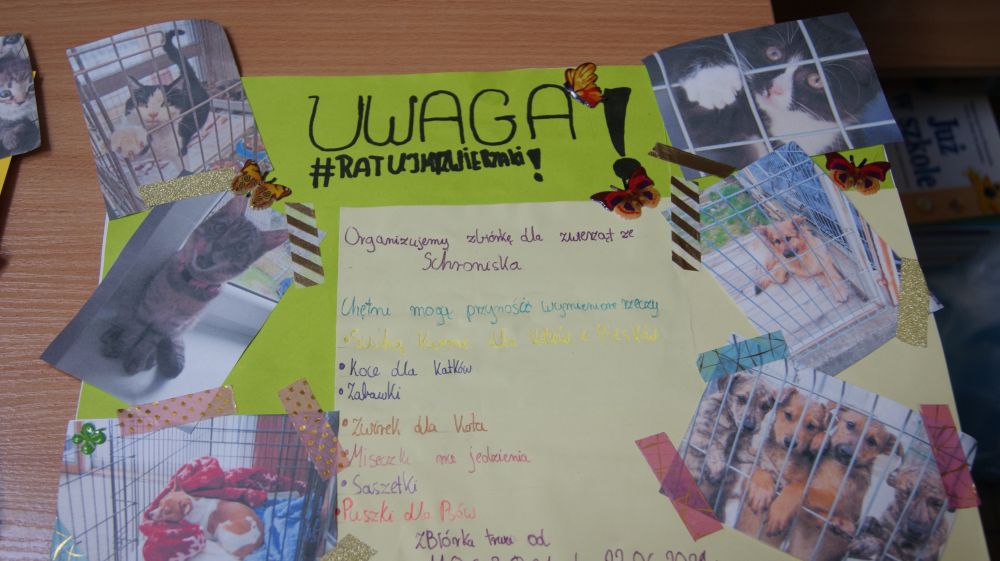 UWAGA!
#RATUJMYZWIERZAKI!
Organizujemy zbiórkę dla zwierząt ze
Schroniska
Chętni mogą przynościć wymienione rzeczy
• Suchą Karmę dla kotków i Piesków
• Koce dla Kotków
• Zabawki
• Żwirek dla Kota
• Miseczki na jedzienia
• Saszetki
• Puszki dla Psów
Zbiórka trwa od
Już
w szkole